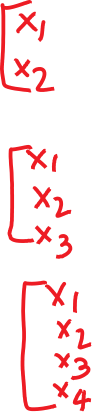 x₁
x₂
x₁
x₂
x₃
x₁
x₂
x₃
x₄